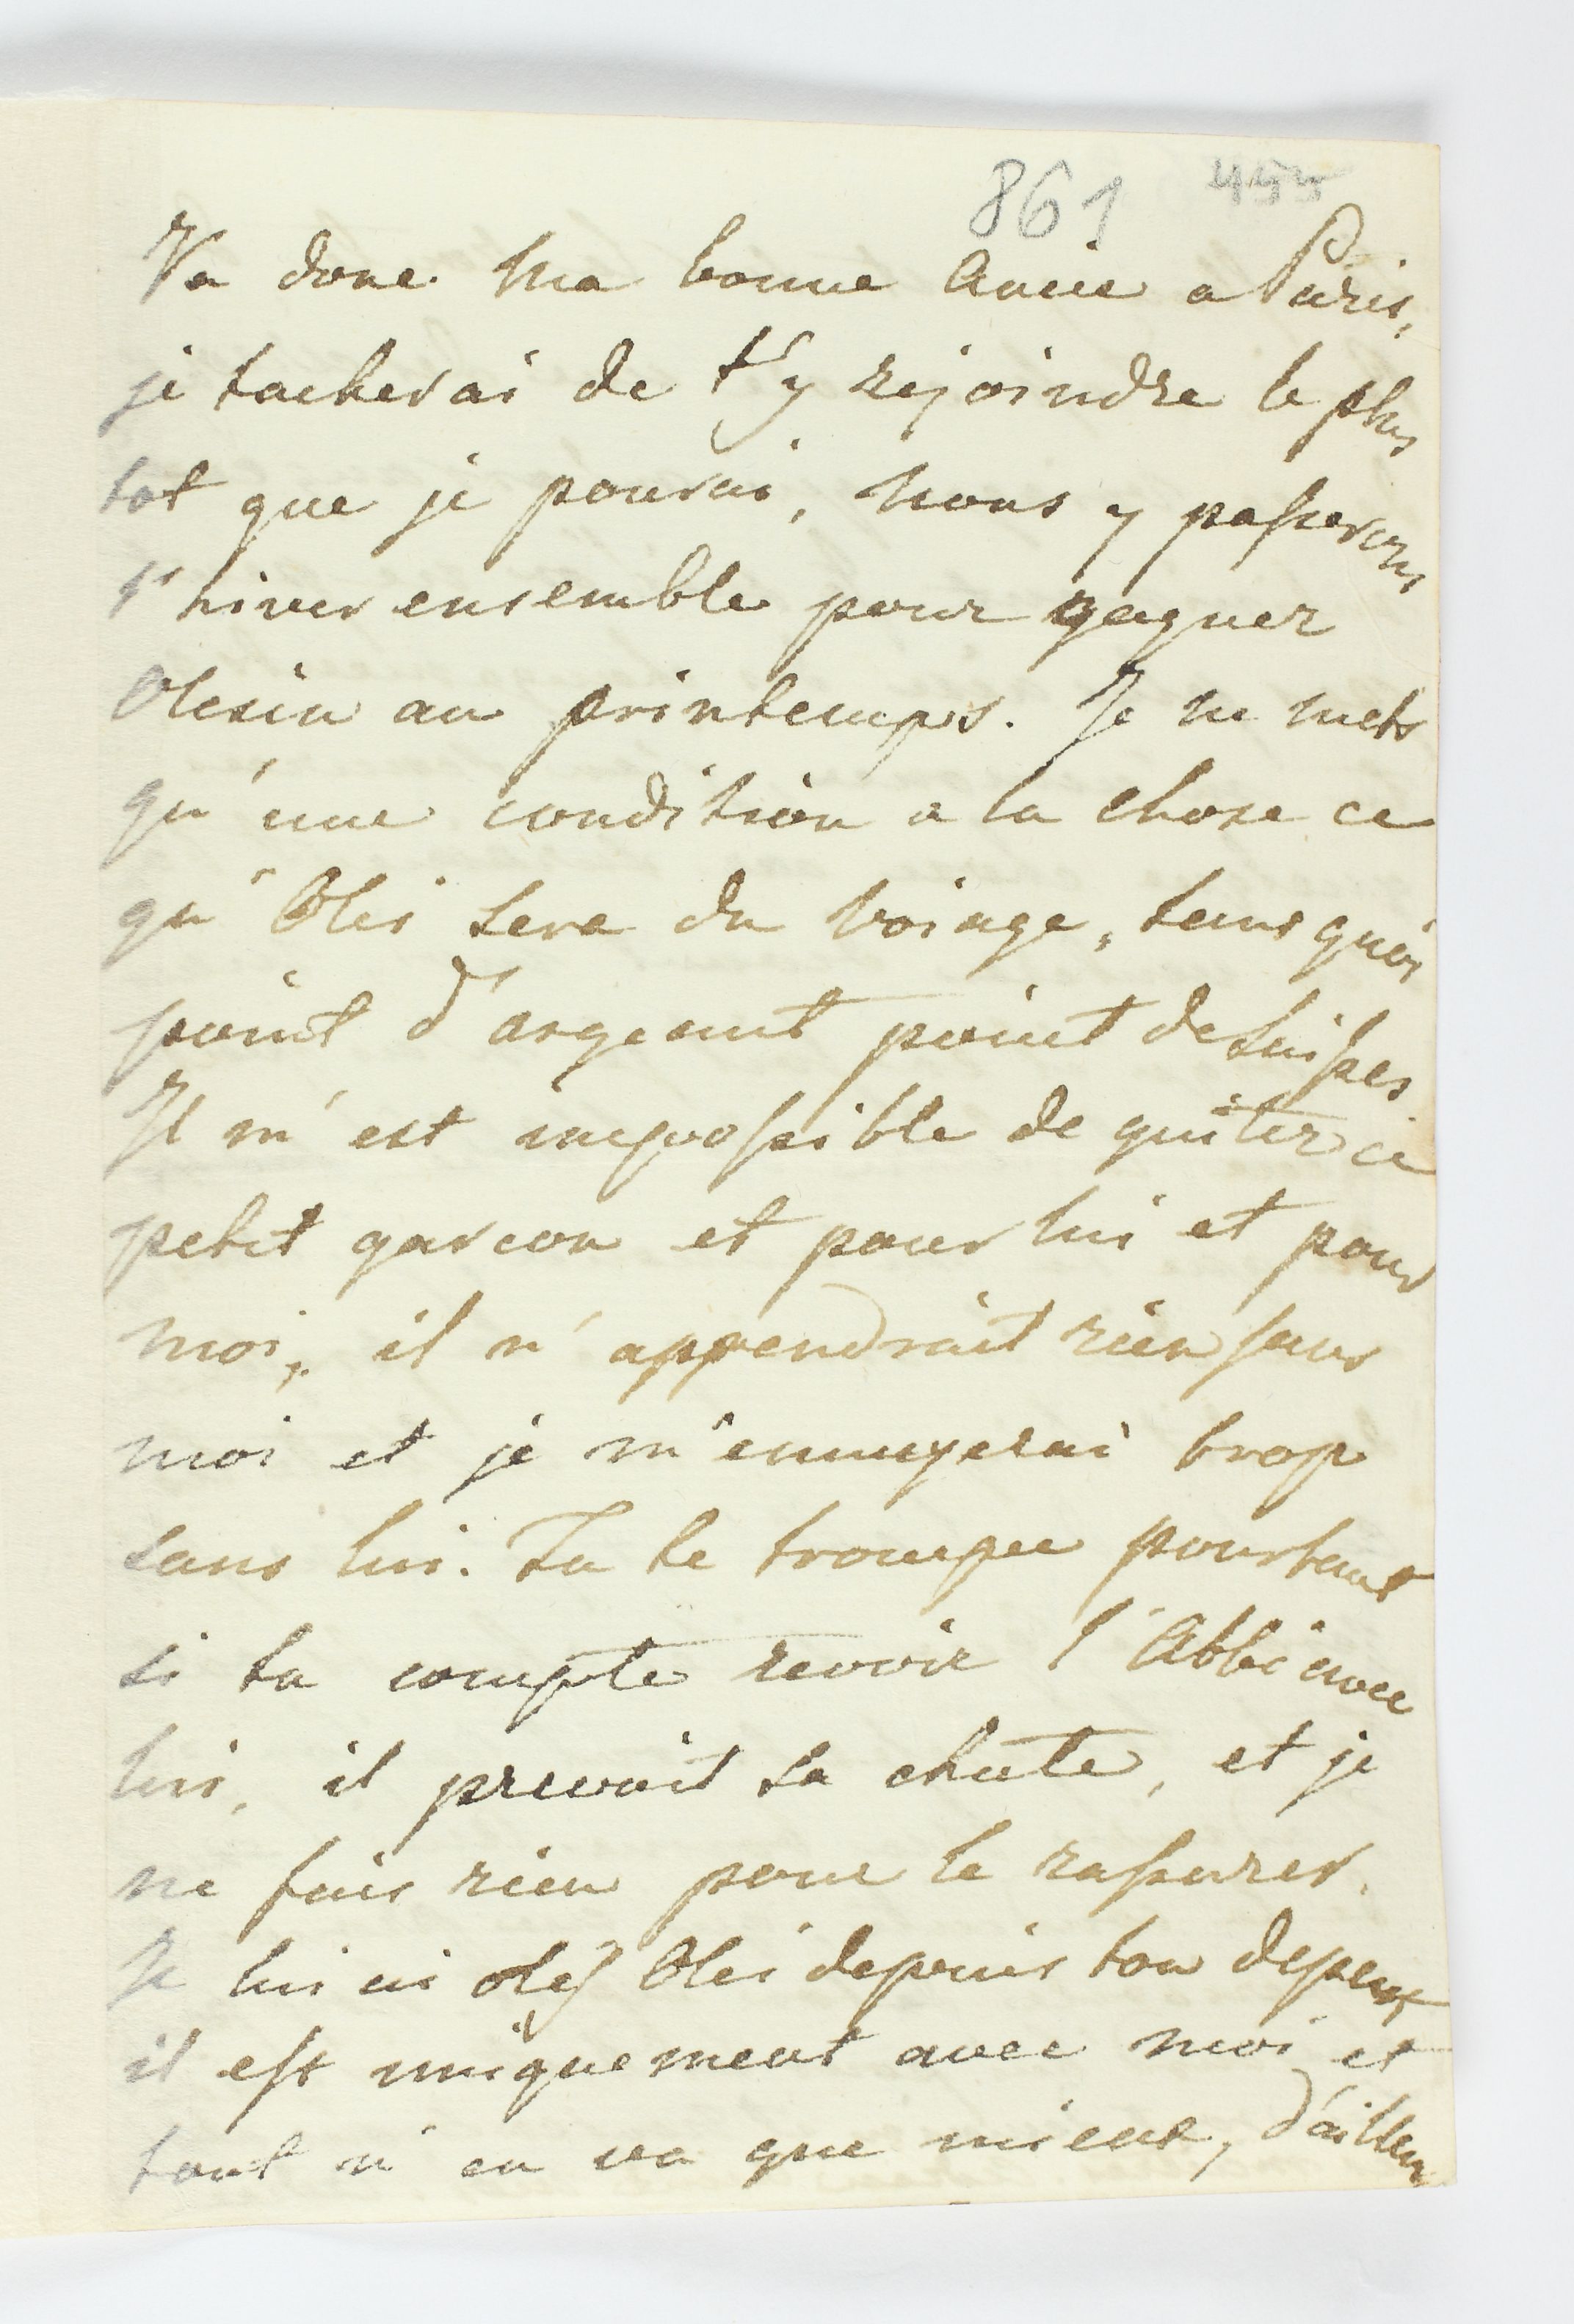 861 455
Va donc ma bonne Amie a Paris,
je tacherai de t'y rejoindre le plus
tot que je pourai, nous y passerons
l'hiver ensemble pour gagner
Olesin au printemps. Je ne mets
qu'une condition a la chose ce
qu'Oles sera du voiage, sans quoi
point d'argeant point de suisses
Il m'est impossible de quiter ce
petit garcon et pour lui et pour
moi, il n'apprendrait rien sans
moi et je m'ennuyerai trop
sans lui. Tu te trompe pourtant
si tu compte revoir l'Abbé avec
lui, il prevoit sa chute, et je
ne fais rien pour le rassurer.
Je lui ai oté Oles depuis ton depart
il est uniquement avec moi et
tout n'en va que mieux, d'ailleurs